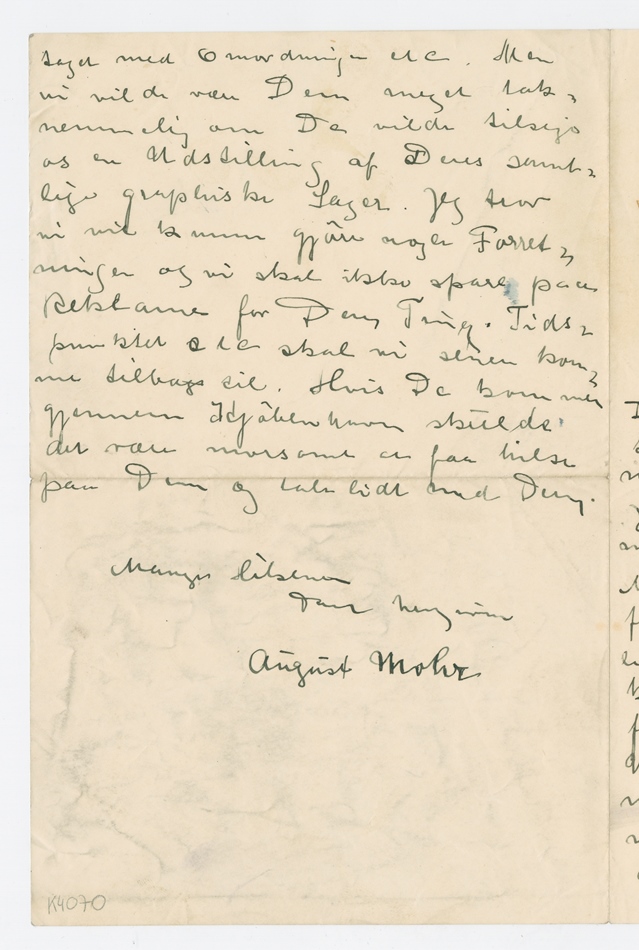 taget med Omordninger etc. Men
vi vilde være Dem meget tak-
nemmelig om De vilde tilsige
os en Udstilling af Deres samt-
lige graphiske Sager. Jeg tror
vi vil kunne gjøre noger Forret-
ninger og vi skal ikke spare paa
Reklame for Deres Ting. Tids-
punktet etc skal vi senere kom-
me tilbage til. Hvis De kommer
gjennem Kjøbenhavn skulde
det være morsomt at faa hilse
paa Dem og tale lidt med Dem.
Mange Hilsener
Deres hengivne
August Mohr
K4070